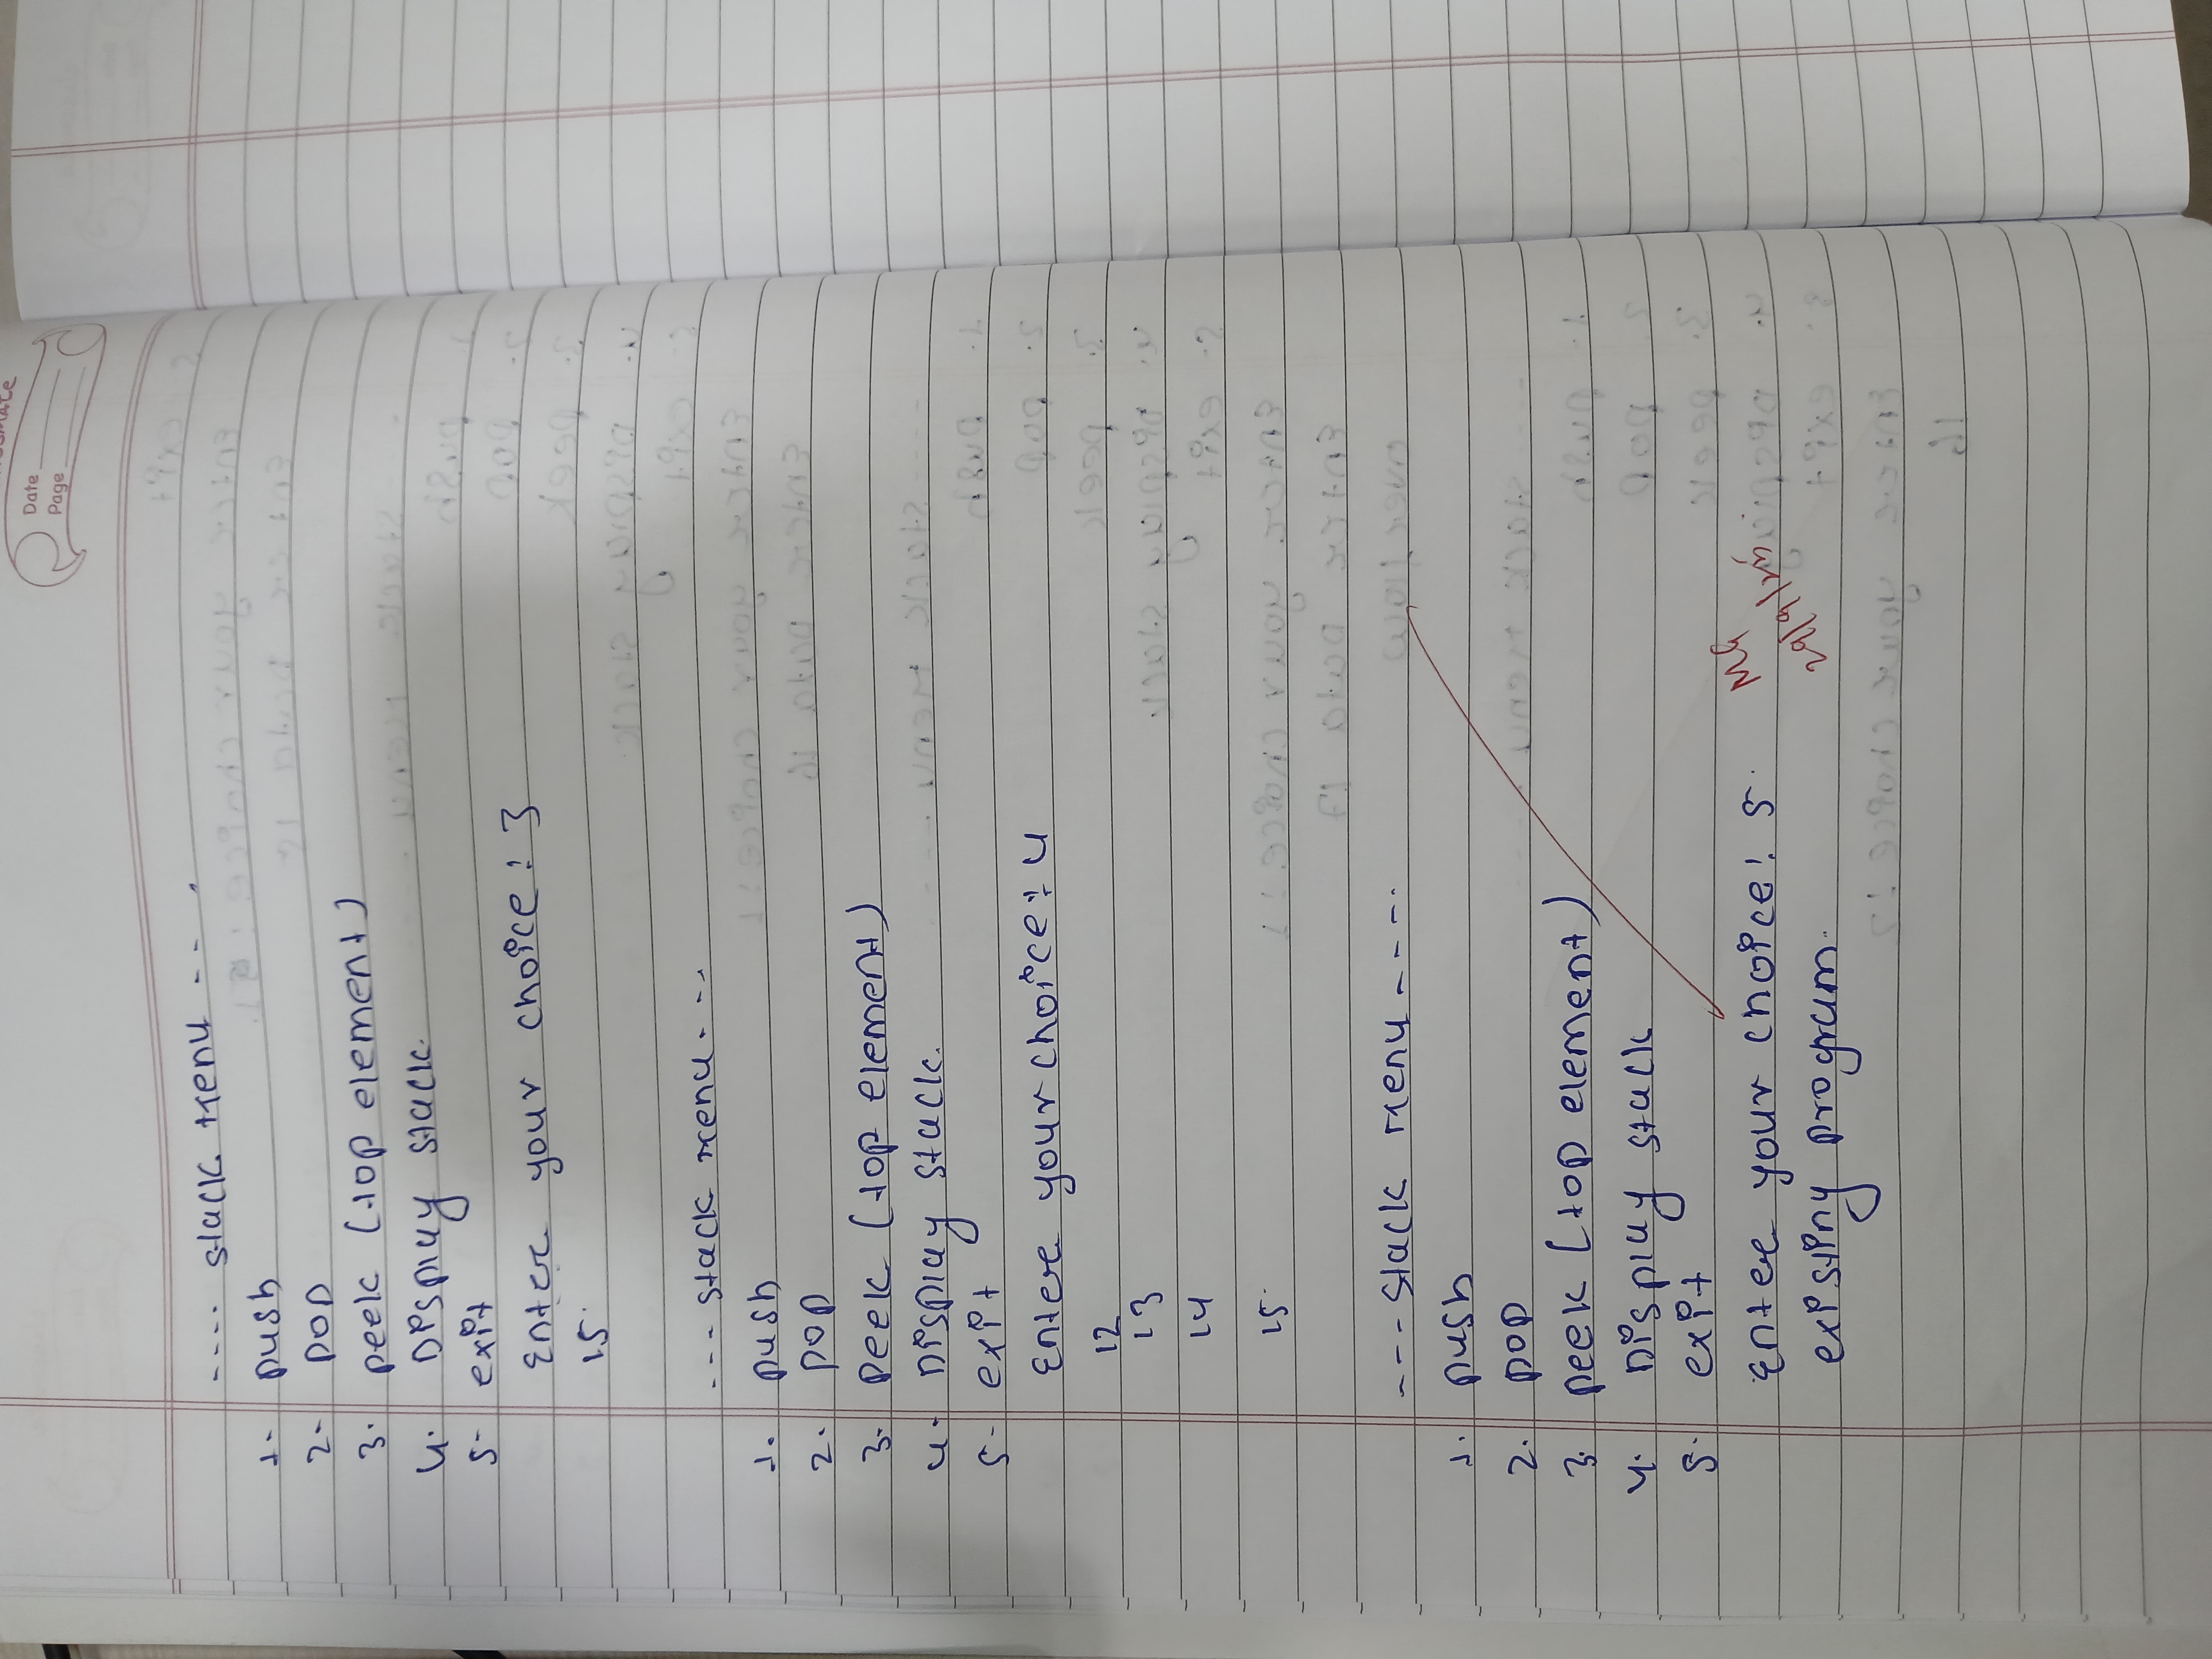 Date
Page
---- stack menu -- -
1- push
2- pop
3. peek (top element)
4. Display stack.
5- exit
Enter your choice: 3
15.
--- stack menu - --
1. push
2. pop
3- peek (top element)
4- Display stack.
5- exit
Enter your choice: 4
12
13
14
15.
--- stack menu ----
1. push
2. pop
3. peek (top element)
4. Display stack
5. exit
Enter your choice: 5.
existing program.
29/9/25